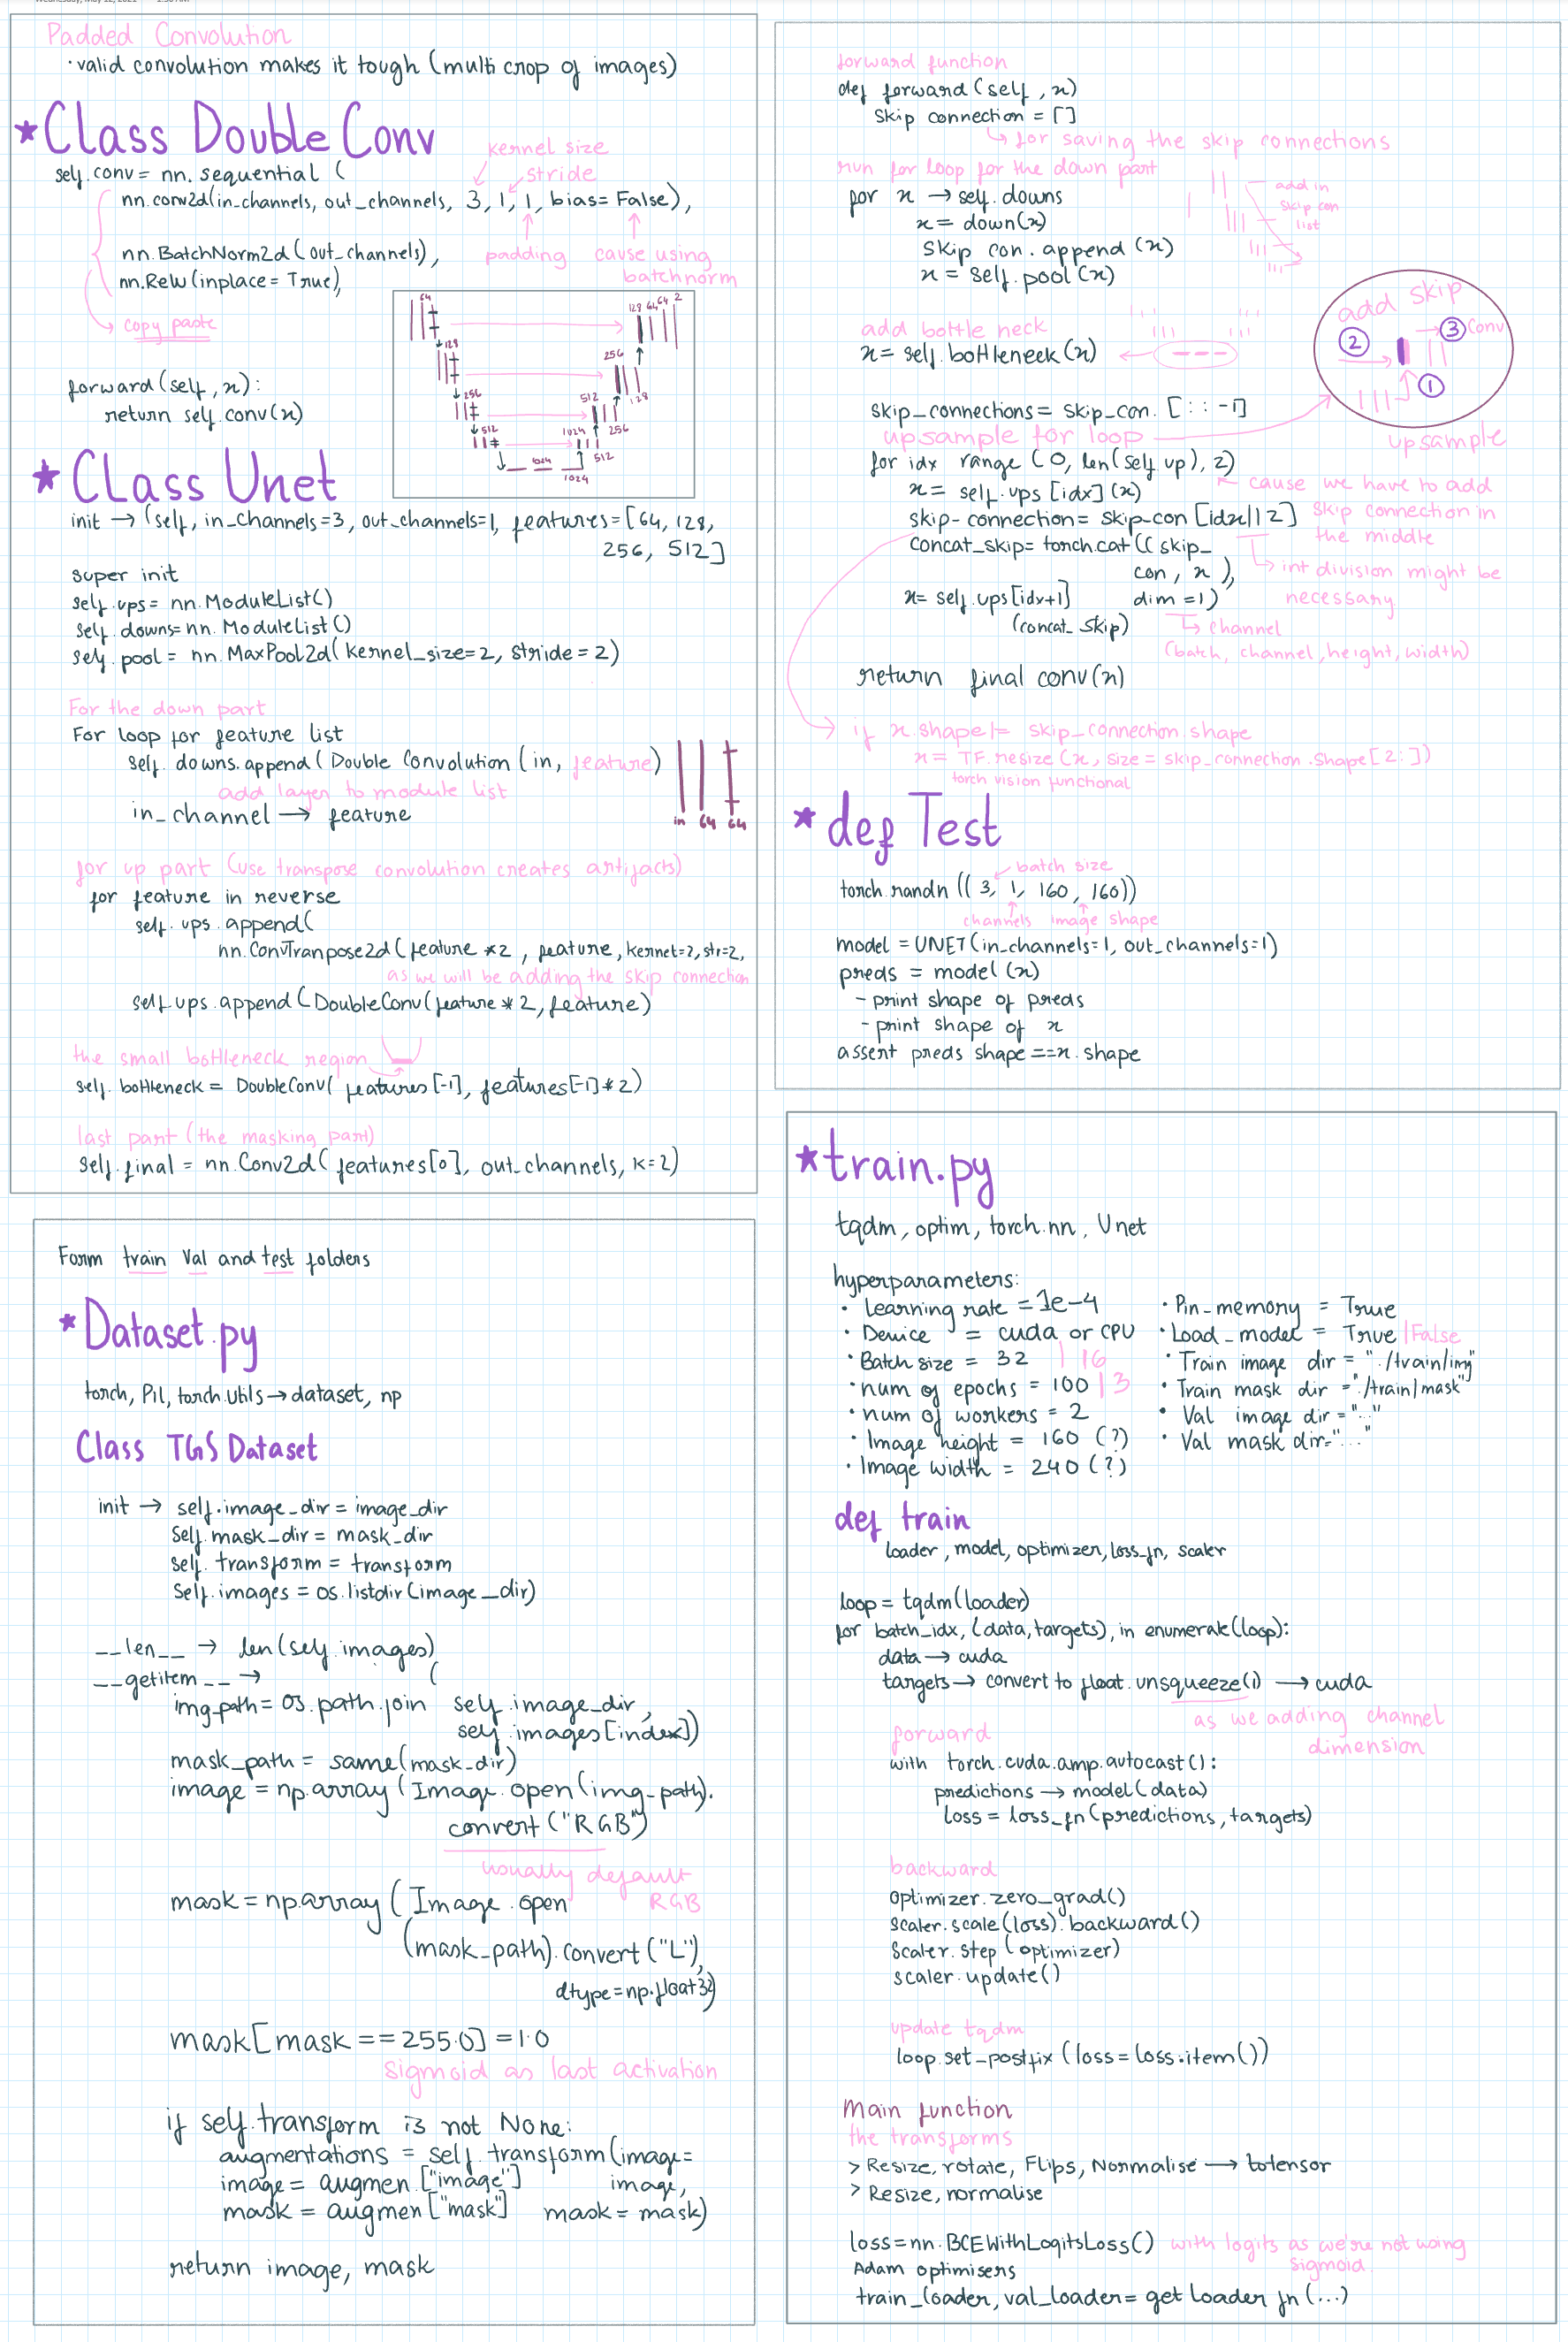 Wednesday, May 12, 2021
Padded Convolution
· valid convolution makes it tough (multi crop of images)
* Class Double Conv
kernel size
stride
self.conv = nn.sequential (
nn.conv2d(in_channels, out_channels, 3, 1, 1, bias= False),
padding
cause using
batchnorm
nn.BatchNorm2d(out_channels),
nn.Relu(inplace = True),
copy paste
forward(self, x):
return self.conv(x)
64
128
256
512
1024
1024
512
1024
256
512
128
256
128 64 64 2
* Class Unet
init → (self, in_channels=3, out_channels=1, features=[64, 128,
256, 512]
super init
self.ups= nn.ModuleList()
self.downs=nn.ModuleList()
self.pool = nn.MaxPool2d(kernel_size=2, stride=2)
For the down part
For loop for feature list
self.downs.append(Double Convolution (in, feature)
add layer to module list
in_channel → feature
in 64 64
for up part (use transpose convolution creates artifacts)
for feature in reverse
self.ups.append(
nn.ConvTranpose2d(feature *2, feature, kernel=2, str=2,
as we will be adding the skip connection
self.ups.append(DoubleConv(feature * 2, feature)
the small bottleneck region
self.bottleneck = DoubleConv( features[-1], features[-1]*2)
last part (the masking part)
self.final = nn.Conv2d( features[0], out_channels, k=2)
forward function
def forward(self, x)
skip connection = []
for saving the skip connections
run for loop for the down part
for x → self.downs
x= down(x)
skip con.append(x)
x = self.pool(x)
add in
skip con
list
add bottle neck
x= self.bottleneck(x)
add skip
2
3 Conv
1
upsample
skip_connections= skip_con. [::-1]
upsample for loop
for idx range (0, len(self up), 2)
x= self.ups [idx](x)
cause we have to add
skip connection in
the middle
skip-connection= skip-con [idx//2]
concat_skip= torch.cat((skip_
con, x),
dim =1)
int division might be
necessary
x= self.ups[idx+1]
(concat_skip)
channel
(batch, channel, height, width)
return final conv(x)
if x.shape != skip_connection.shape
x= TF.resize(x, size = skip_connection.shape[2:])
torch vision functional
* def Test
batch size
torch.randn ((3, 1, 160, 160))
channels image shape
model = UNET(in_channels=1, out_channels=1)
preds = model(x)
- print shape of preds
- print shape of x
assert preds shape ==x.shape
Form train Val and test folders
* Dataset.py
torch, PIL, torch.utils → dataset, np
Class TGS Dataset
init → self.image_dir = image_dir
self.mask_dir = mask_dir
self.transform = transform
self.images = os.listdir(image_dir)
__len__ → len(self.images)
__getitem__ →
img_path= os.path.join (self.image_dir,
self.images[index])
mask_path = same(mask_dir)
image = np.array (Image.open(img_path).
convert("RGB")
usually default
RGB
mask = np.array (Image.open
(mask_path).convert("L"),
dtype=np.float32)
mask[mask == 255.0] = 1.0
Sigmoid as last activation
if self.transform is not None:
augmentations = self.transform(image=
image,
mask = mask)
image = augmen.["image"]
mask = augmen["mask"]
return image, mask
* train.py
tqdm, optim, torch.nn, Unet
hyperparameters:
· Learning rate = 1e-4
· Device = cuda or CPU
· Batch size = 32 | 16
· num of epochs = 100 | 3
· num of workers = 2
· Image height = 160 (?)
· Image width = 240 (?)
· Pin_memory = True
· Load_model = True |False
· Train image dir = "./train/img"
· Train mask dir = "./train/mask"
· Val image dir = "..."
· Val mask dir= "..."
def train
loader, model, optimizer, loss_fn, scaler
loop = tqdm(loader)
for batch_idx, (data, targets), in enumerate(loop):
data → cuda
targets → convert to float.unsqueeze(1) → cuda
as we adding channel
dimension
forward
with torch.cuda.amp.autocast():
predictions → model(data)
loss = loss_fn(predictions, targets)
backward
optimizer.zero_grad()
scaler.scale(loss).backward()
scaler.step(optimizer)
scaler.update()
update tqdm
loop.set_postfix (loss=loss.item())
Main function
the transforms
> Resize, rotate, Flips, Normalise → totensor
> Resize, normalise
loss=nn.BCEWithLogitsLoss() with logits as we're not using
sigmoid.
Adam optimisers
train_loader, val_loader= get loader fn (...)